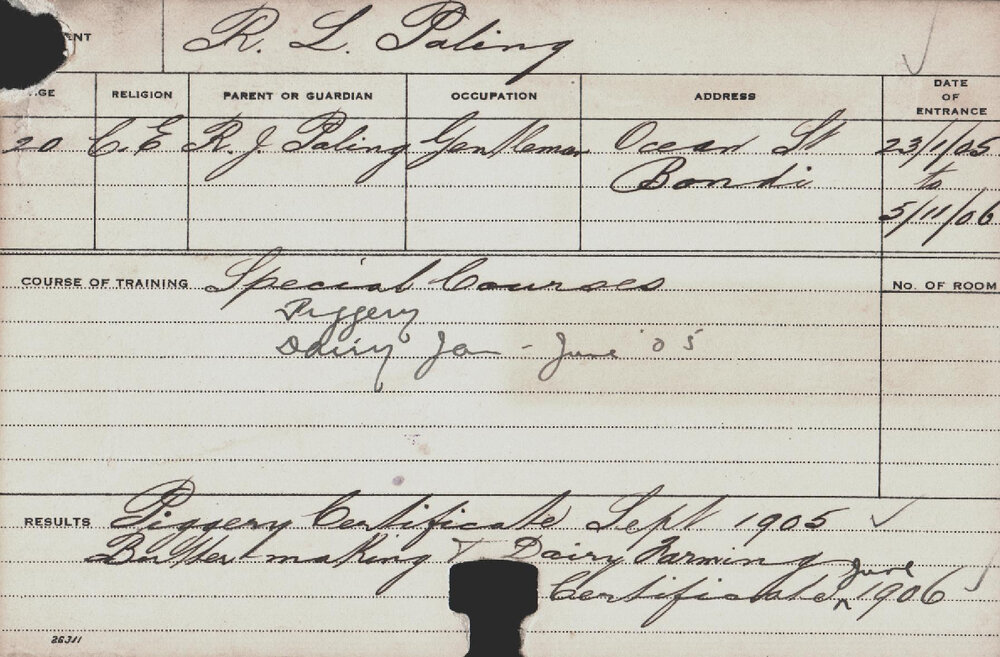 ENT R. L. Paling
AGE RELIGION PARENT OR GUARDIAN OCCUPATION ADDRESS DATE OF ENTRANCE
20 C.E R. J. Paling Gentleman Ocean St 23/1/05
Bondi to
5/11/06
COURSE OF TRAINING Special Courses No. OF ROOM
Piggery
Dairy Jan - June '05
RESULTS Piggery Certificate Sept 1905 ✓
Butter making & Dairy Farming
Certificate ^ June 1906 ✓
26311